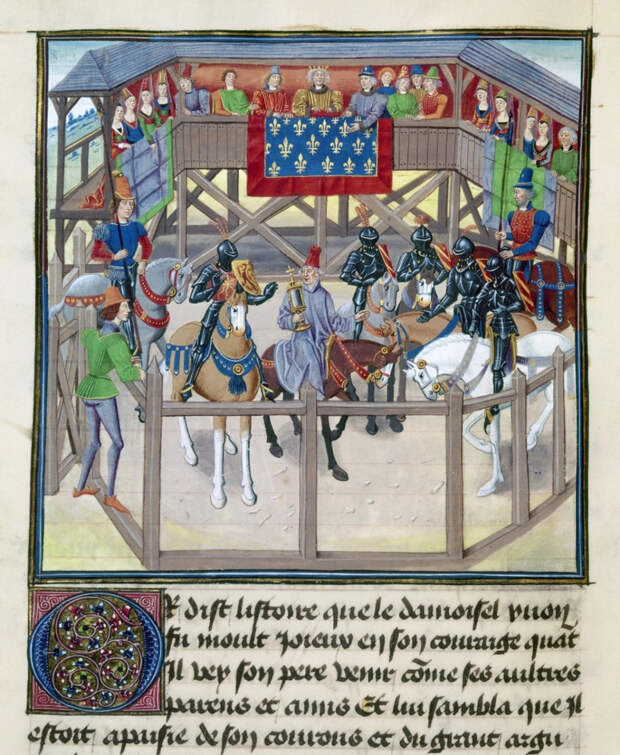 Or dist listoire que le damoisel yuon
fu moult Joieux en son couraige quāt
Il vey son pere venir cōme ses aultres
parens et amis Et lui sambla que Il
estoit apaisie de son courous et du grant argu